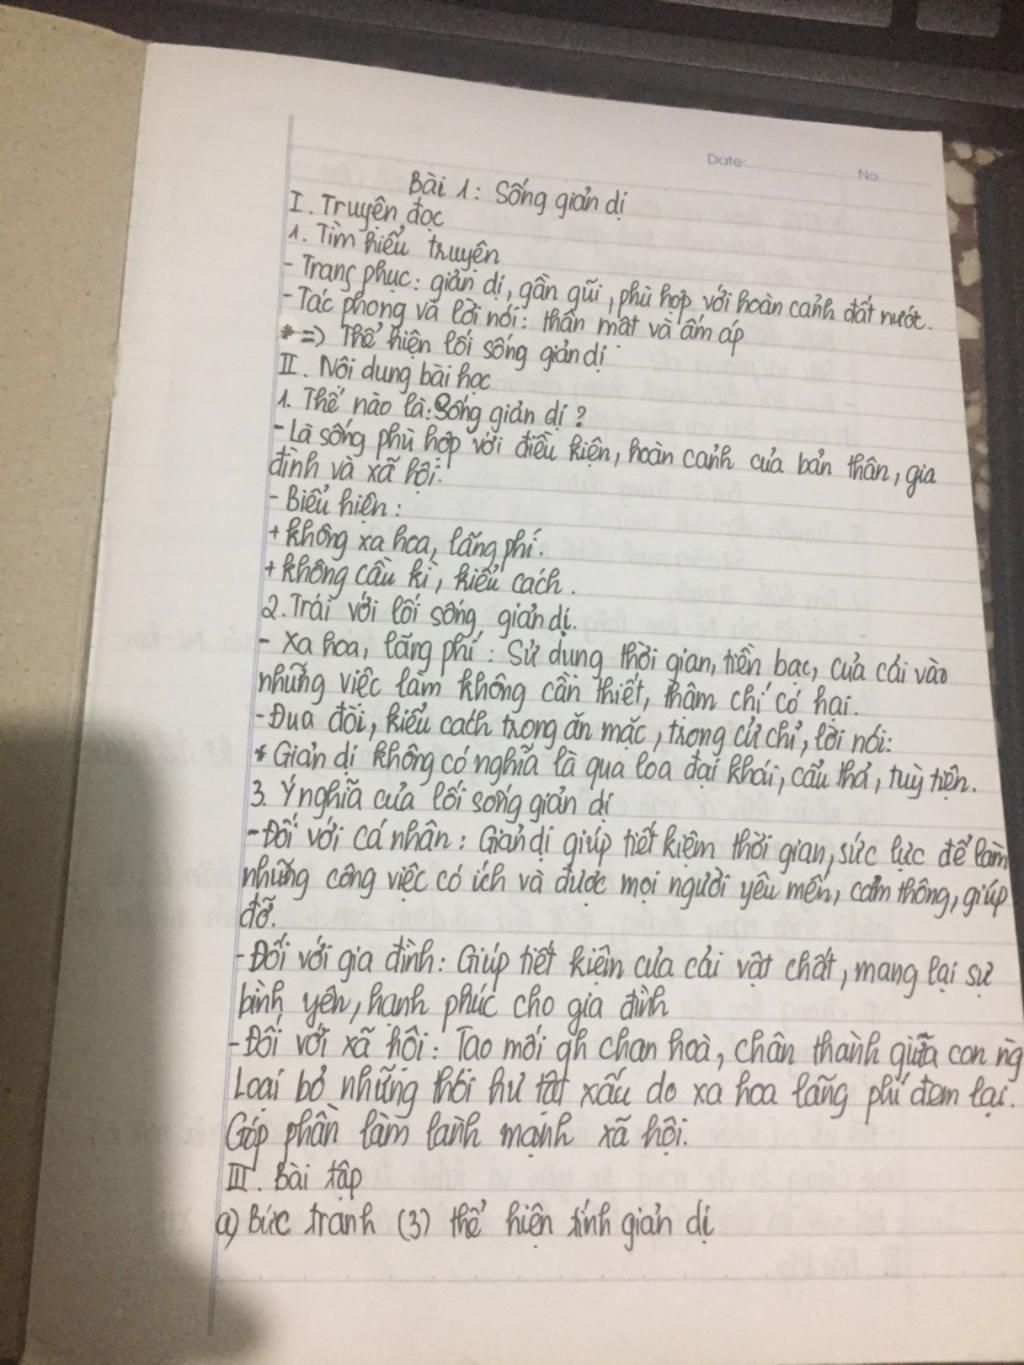 Date:
No
Bài 1: Sống giản dị
I. Truyện đọc
1. Tìm hiểu truyện
- Trang phục: giản dị, gần gũi, phù hợp với hoàn cảnh đất nước.
- Tác phong và lời nói: thân mật và ấm áp
* => Thể hiện lối sống giản dị
II. Nội dung bài học
1. Thế nào là: Sống giản dị?
- Là sống phù hợp với điều kiện, hoàn cảnh của bản thân, gia
đình và xã hội.
- Biểu hiện:
+ không xa hoa, lãng phí.
+ không cầu kì, kiểu cách.
2. Trái với lối sống giản dị.
- Xa hoa, lãng phí: Sử dụng thời gian, tiền bạc, của cải vào
những việc làm không cần thiết, thậm chí có hại.
- Đua đòi, kiểu cách trong ăn mặc, trong cử chỉ, lời nói:
* Giản dị không có nghĩa là qua loa đại khái, cẩu thả, tuỳ tiện.
3. Ý nghĩa của lối sống giản dị
- Đối với cá nhân: Giản dị giúp tiết kiệm thời gian, sức lực để làm
những công việc có ích và được mọi người yêu mến, cảm thông, giúp
đỡ.
- Đối với gia đình: Giúp tiết kiệm của cải vật chất, mang lại sự
bình yên, hạnh phúc cho gia đình
- Đối với xã hội: Tạo mối qh chan hoà, chân thành giữa con ng
Loại bỏ những thói hư tật xấu do xa hoa lãng phí đem lại.
Góp phần làm lành mạnh xã hội.
III. Bài tập
a) Bức tranh (3) thể hiện tính giản dị